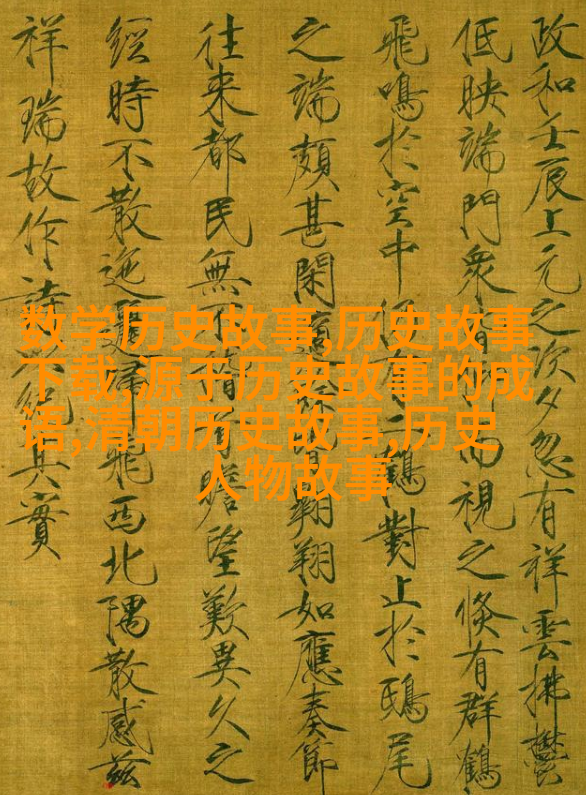 政和壬辰上元之次夕忽有祥雲拂鬱
低映端門衆皆而視之倏有群鶴
飛鳴於空中鶴對止於鴟尾
之端頗甚閑適翱翔如應奏節
往來都民無不瞻望歎異久之
經時不散迤歸飛西北隅散感茲
祥瑞故作詩紀其實
数学历史故事,历史故事
下载,源于历史故事的成
语,清朝历史故事,历史
人物故事